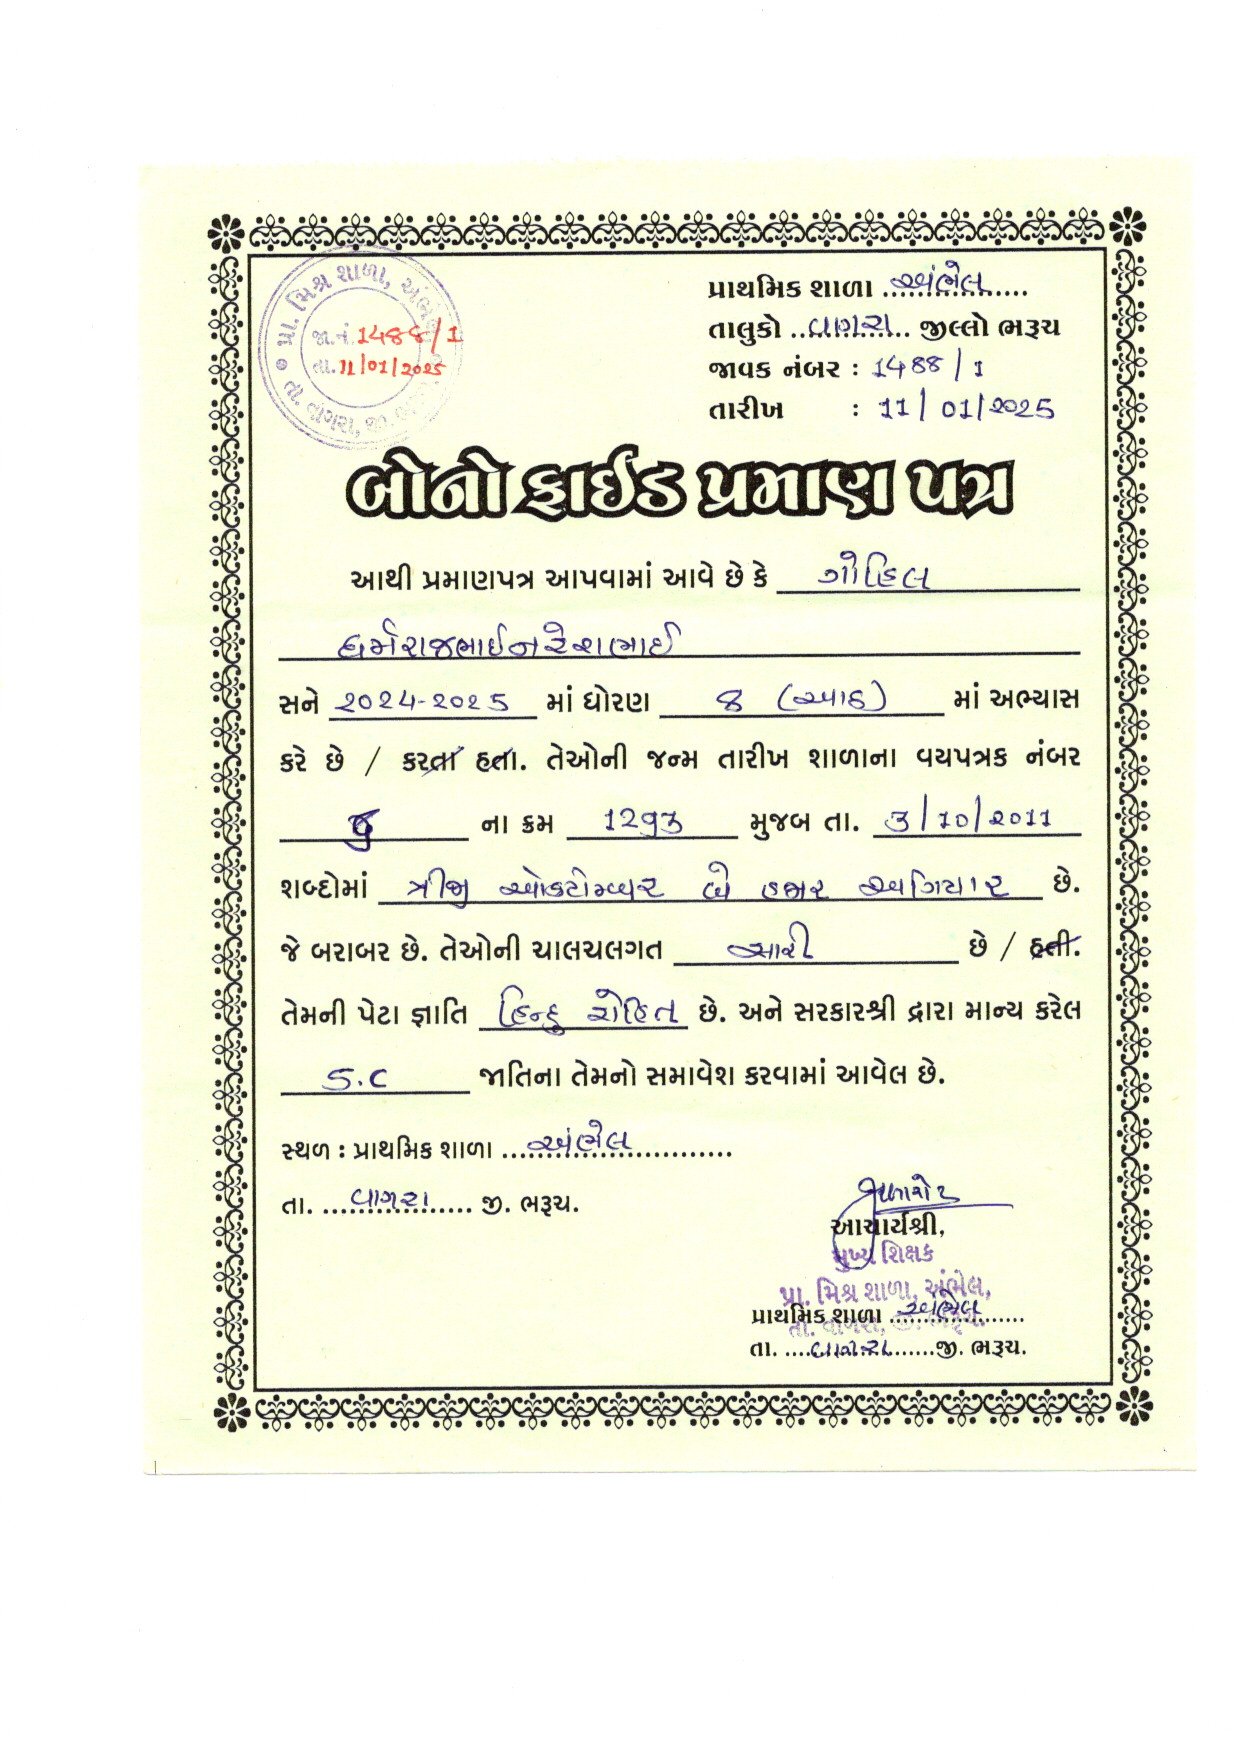 પ્રા. મિશ્ર શાળા, અંભેલ
જા.નં. 1488/1
તા. 11/01/2025
તા. વાગરા, જી. ભરૂચ
પ્રાથમિક શાળા ..અંભેલ..
તાલુકો ..વાગરા.. જીલ્લો ભરૂચ
જાવક નંબર : 1488 / 1
તારીખ : 11 / 01 / 2025
બોનોફાઈડ પ્રમાણ પત્ર
આથી પ્રમાણપત્ર આપવામાં આવે છે કે ગોહિલ
ધર્મરાજભાઈ નરેશભાઈ
સને 2024-2025 માં ધોરણ 8 (આઠ) માં અભ્યાસ
કરે છે / કરતા હતા. તેઓની જન્મ તારીખ શાળાના વયપત્રક નંબર
ના ક્રમ મુજબ તા. 3/10/2011
શબ્દોમાં ત્રીજી ઓક્ટોમ્બર બે હજાર અગિયાર છે.
જે બરાબર છે. તેઓની ચાલચલગત સારી છે / હતી.
તેમની પેટા જ્ઞાતિ હિન્દુ રોહિત છે. અને સરકારશ્રી દ્વારા માન્ય કરેલ
S.C જાતિના તેમનો સમાવેશ કરવામાં આવેલ છે.
સ્થળ : પ્રાથમિક શાળા ..અંભેલ..
તા. ..વાગરા.. જી. ભરૂચ.
આચાર્યશ્રી,
મુખ્ય શિક્ષક
પ્રા. મિશ્ર શાળા, અંભેલ,
પ્રાથમિક શાળા ..અંભેલ..
તા. વાગરા, જી. ભરૂચ.
તા. ..વાગરા..જી. ભરૂચ.